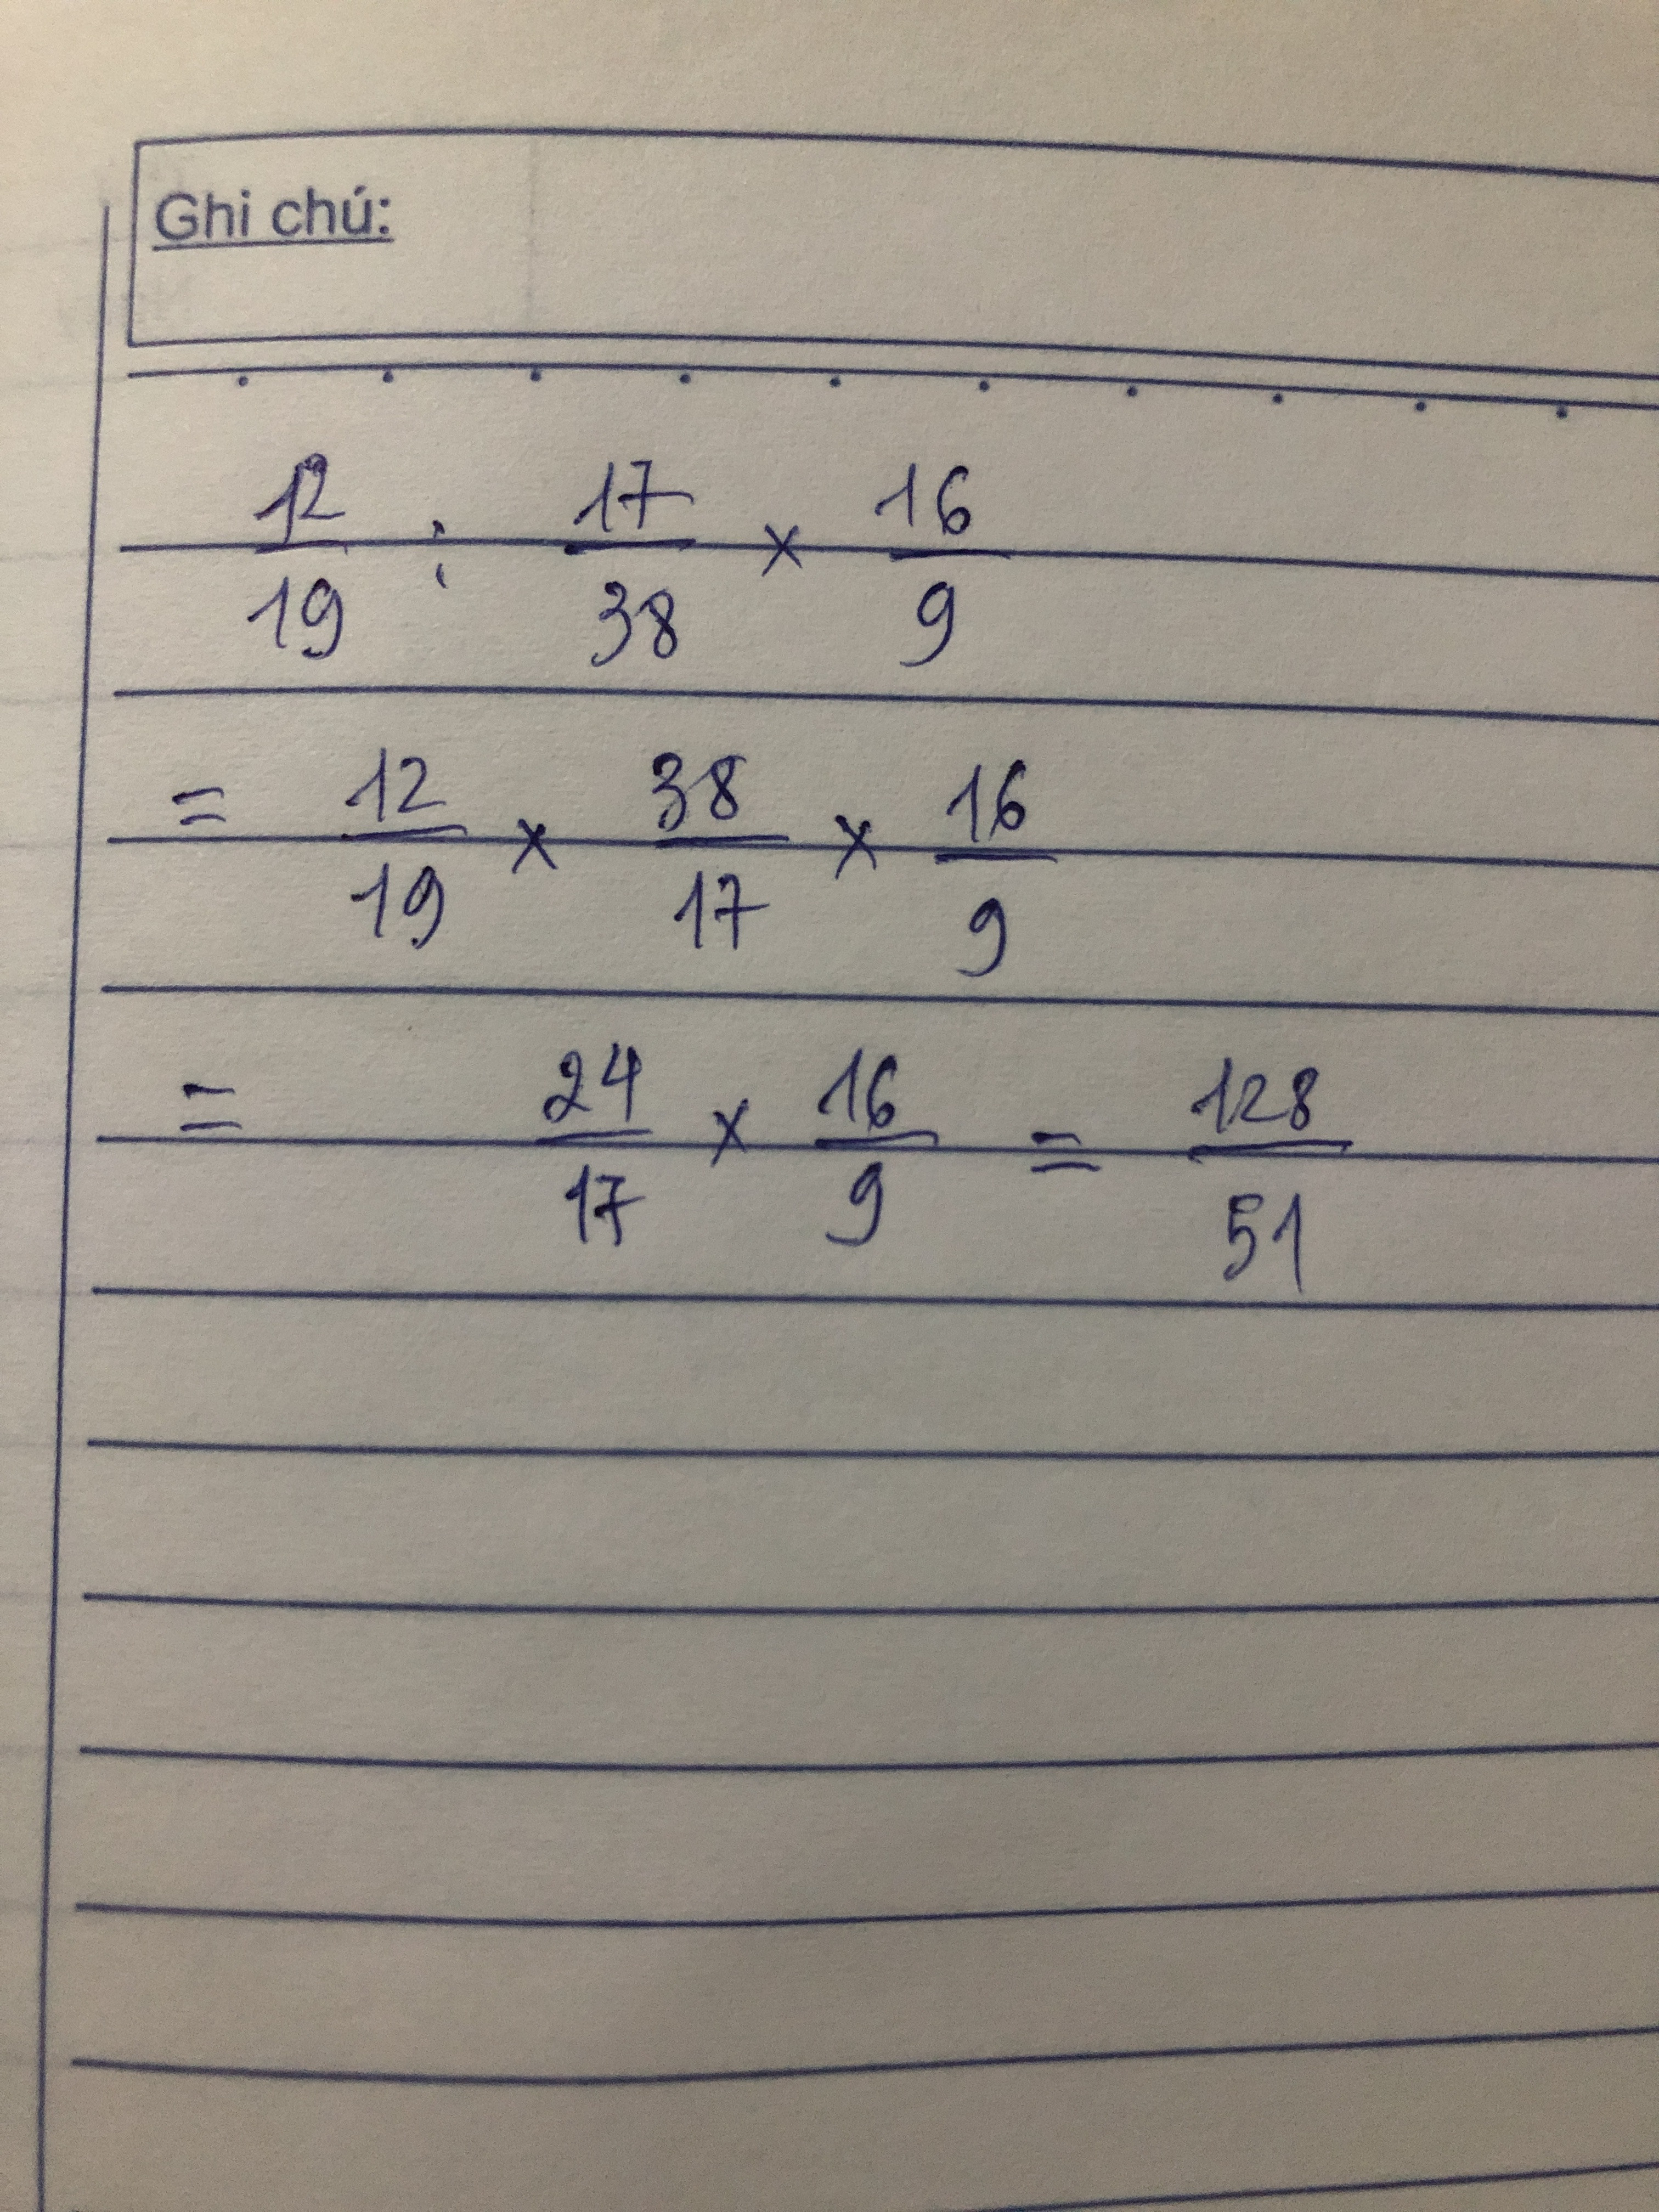 Ghi chú:
12/19 : 17/38 × 16/9
= 12/19 × 38/17 × 16/9
= 24/17 × 16/9 = 128/51